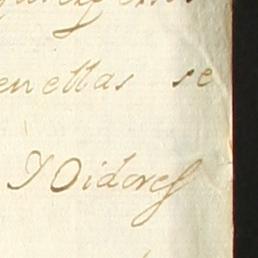 en ellas se
Y Oidores